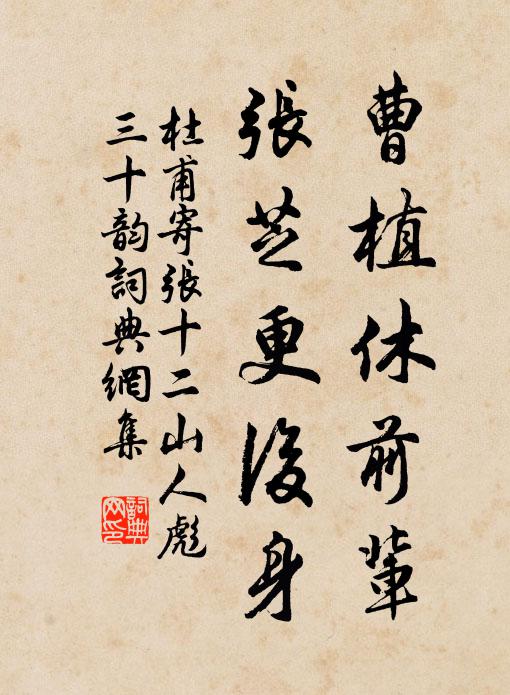 曹植休前輩
張芝更後身
杜甫寄張十二山人彪
三十韵詞典網集
詞典
网印